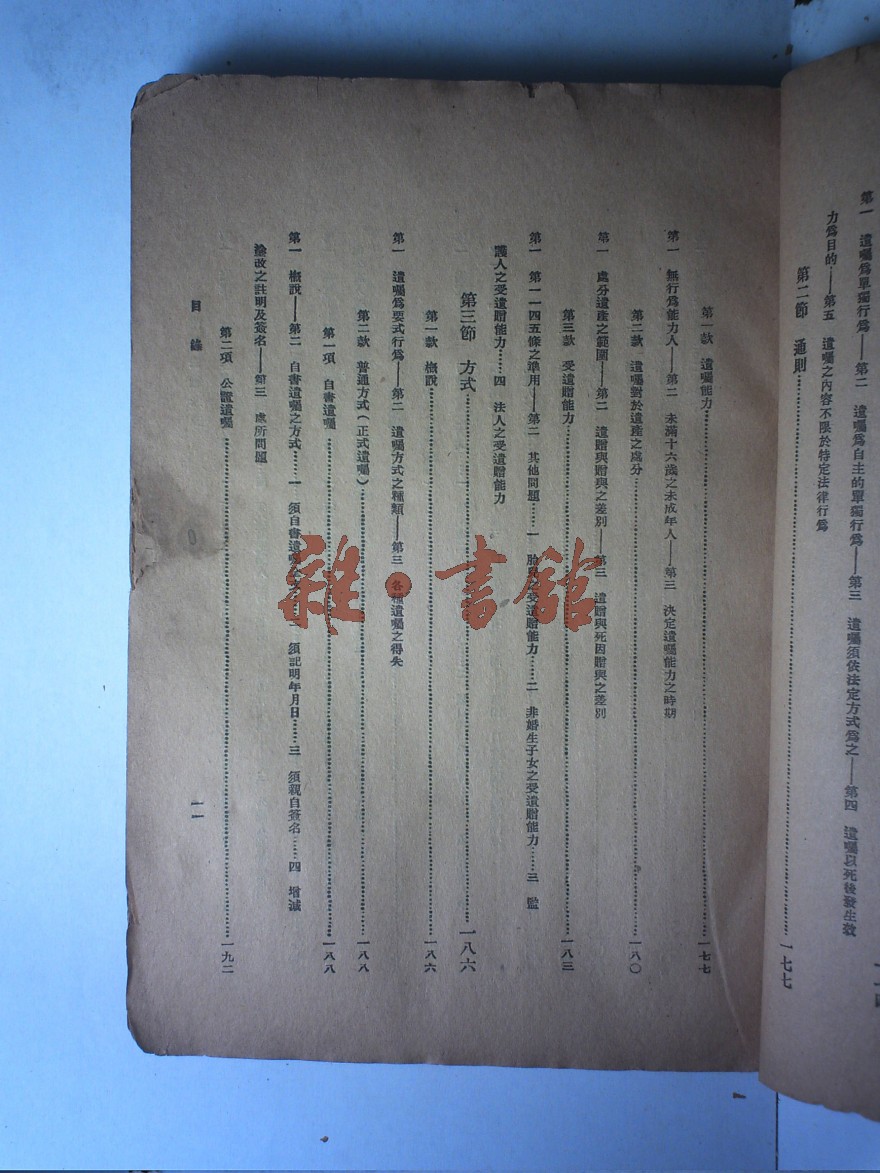 第一　遺囑爲單獨行爲——第二　遺囑爲自主的單獨行爲——第三　遺囑須依法定方式爲之——第四　遺囑以死後發生效
力爲目的——第五　遺囑之內容不限於特定法律行爲
第二節　通則……一七七
第一款　遺囑能力……一七七
第一　無行爲能力人——第二　未滿十六歲之未成年人——第三　決定遺囑能力之時期
第二款　遺囑對於遺產之處分……一八〇
第一　處分遺產之範圍——第二　遺贈與贈與之差別——第三　遺贈與死因贈與之差別
第三款　受遺贈能力……一八三
第一　第一一四五條之準用——第二　其他問題……一　胎兒之受遺贈能力……二　非婚生子女之受遺贈能力……三　監
護人之受遺贈能力……四　法人之受遺贈能力
第三節　方式……一八六
第一款　槪說……一八六
第一　遺囑爲要式行爲——第二　遺囑方式之種類——第三　各種遺囑之得失
第二款　普通方式（正式遺囑）……一八八
第一項　自書遺囑……一八八
第一　槪說——第二　自書遺囑之方式……一　須自書遺囑全文……二　須記明年月日……三　須親自簽名……四　增減
塗改之註明及簽名——第三　處所問題
第二項　公證遺囑……一九二
目錄
一一
雜·書館